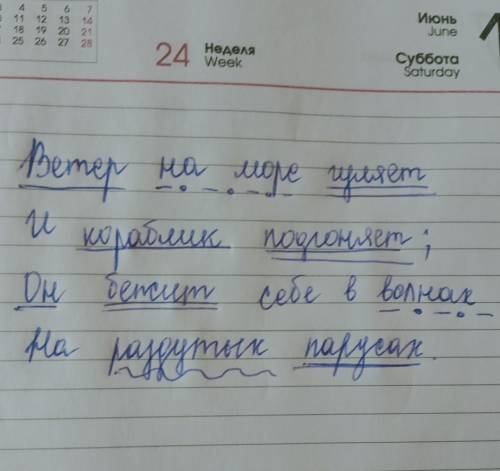 4 5 6 7
11 12 13 14
18 19 20 21
25 26 27 28
24 Неделя
Week
Июнь
June
Суббота
Saturday
Ветер на море гуляет
И кораблик подгоняет;
Он бежит себе в волнах
На раздутых парусах.